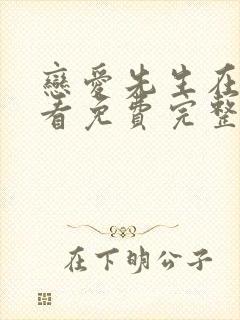 戀愛先生在
看免費完整
在下明公子